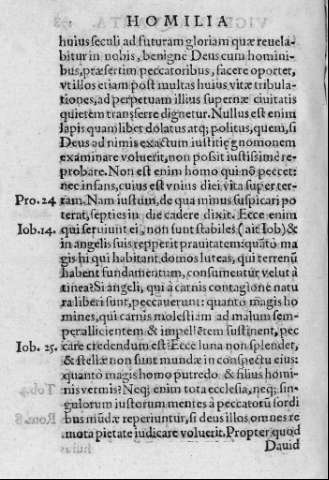 HOMILIA
huius seculi ad futuram gloriam quæ reuela-
bitur in nobis, benigne Deus cum homini-
bus, præsertim peccatoribus, facere oportet,
vt illos etiam post multas huius vitæ tribula-
tiones, ad perpetuam illius supernæ ciuitatis
quietem transferre dignetur. Nullus est enim
lapis quamlibet dolatus atq; politus, quem, si
Deus ad nimis exactum iustitię gnomonem
examinare voluerit, non possit iustissimè re-
probare. Non est enim homo qui nõ peccet:
nec infans, cuius est vnius diei vita super ter-
Pro. 24 ram. Nam iustum, de qua minus suspicari po
terat, septies in die cadere dixit. Ecce enim
Iob. 14. qui seruiunt ei, non sunt stabiles (ait Iob) &
in angelis suis repperit prauitatem: quãtò ma
gis hi qui habitant domos luteas, qui terrenũ
habent fundamentum, consumentur velut à
tinea? Si angeli, qui à carnis contagione natu
ra liberi sunt, peccauerunt: quanto magis ho
mines, qui carnis molestiam ad malum sem-
per allicientem & impellẽtem sustinent, pec
Iob. 25. care credendum est? Ecce luna non splendet,
& stellæ non sunt mundæ in conspectu eius:
quantò magis homo putredo & filius homi-
nis vermis? Neq; enim tota ecclesia, neq; sin-
gulorum iustorum mentes à peccatorũ sordi
bus mũdæ reperiuntur, si deus illos omnes re
mota pietate iudicare voluerit. Propter quod
Dauid